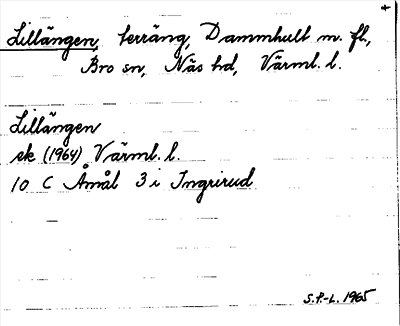 Lillängen, terräng, Dammhult m. fl.,
Bro sn, Näs hd, Värml. l.
Lillängen
ek (1964) Värml. l.
10 C Åmål 3 i Ingrirud
S.P-L. 1965